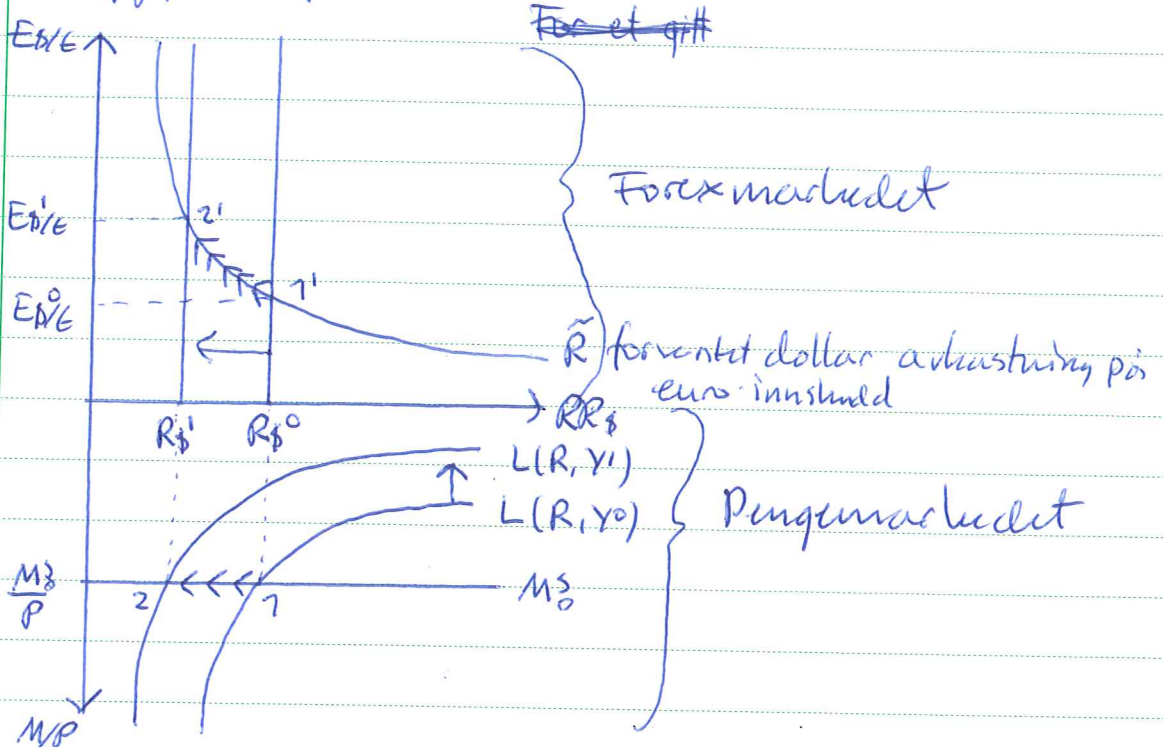 E$/€
For et gitt
Forexmarkedet
E$'/€
2'
E$⁰/€
1'
R̃ forventet dollar avkastning på
euro innskudd
RR$
R$¹ R$⁰
L(R,Y¹)
L(R,Y⁰)
Pengemarkedet
M$0/P
2 1
M$0
M/P